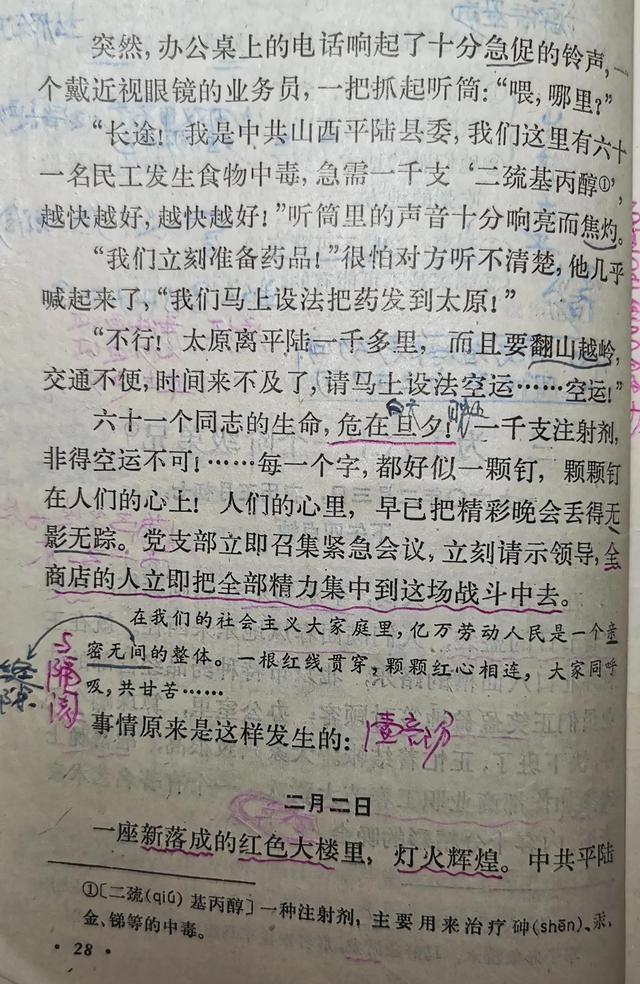 突然，办公桌上的电话响起了十分急促的铃声，一
个戴近视眼镜的业务员，一把抓起听筒：“喂，哪里？”
“长途！我是中共山西平陆县委，我们这里有六十
一名民工发生食物中毒，急需一千支‘二巯基丙醇①’，
越快越好，越快越好！”听筒里的声音十分响亮而焦灼。
“我们立刻准备药品！”很怕对方听不清楚，他几乎
喊起来了，“我们马上设法把药发到太原！”
“不行！太原离平陆一千多里，而且要翻山越岭，
交通不便，时间来不及了，请马上设法空运……空运！”
六十一个同志的生命，危在旦夕！一千支注射剂，
非得空运不可！……每一个字，都好似一颗钉，颗颗钉
在人们的心上！人们的心里，早已把精彩晚会丢得无
影无踪。党支部立即召集紧急会议，立刻请示领导，全
商店的人立即把全部精力集中到这场战斗中去。
在我们的社会主义大家庭里，亿万劳动人民是一个亲
密无间的整体。一根红线贯穿，颗颗红心相连，大家同呼
吸，共甘苦……
隔阂
事情原来是这样发生的：
二月二日
一座新落成的红色大楼里，灯火辉煌。中共平陆
①〔二巯(qiú)基丙醇〕一种注射剂，主要用来治疗砷(shēn)、汞、
金、锑等的中毒。
·28·